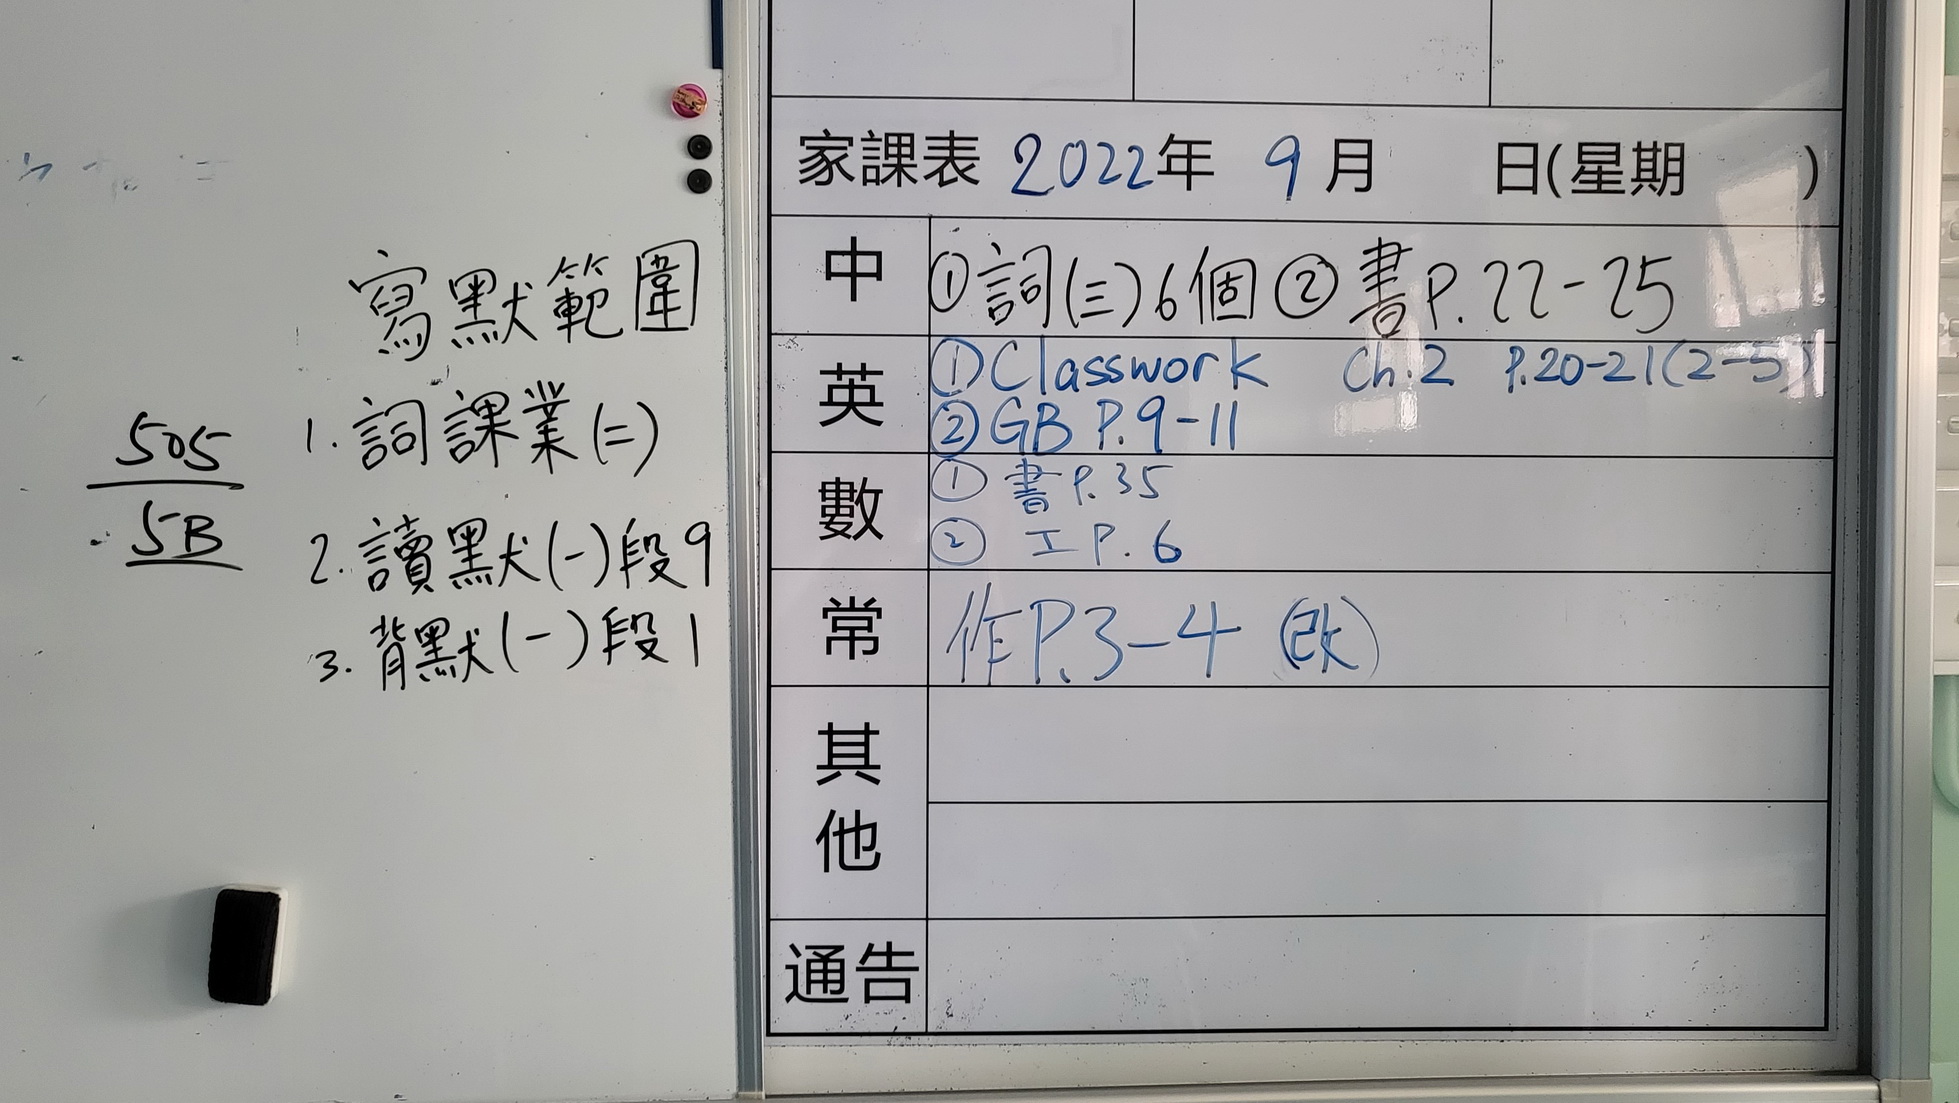 寫默範圍
1. 詞課業(二)
2. 讀默(一)段9
3. 背默(一)段1
505
5B
家課表 2022年 9月 日(星期 )
中 ①詞(三)6個 ②書P.22-25
英 ①Classwork Ch.2 P.20-21(2-5)
②GB P.9-11
數 ①書P.35
②工P.6
常 作P.3-4 (改)
其他
通告